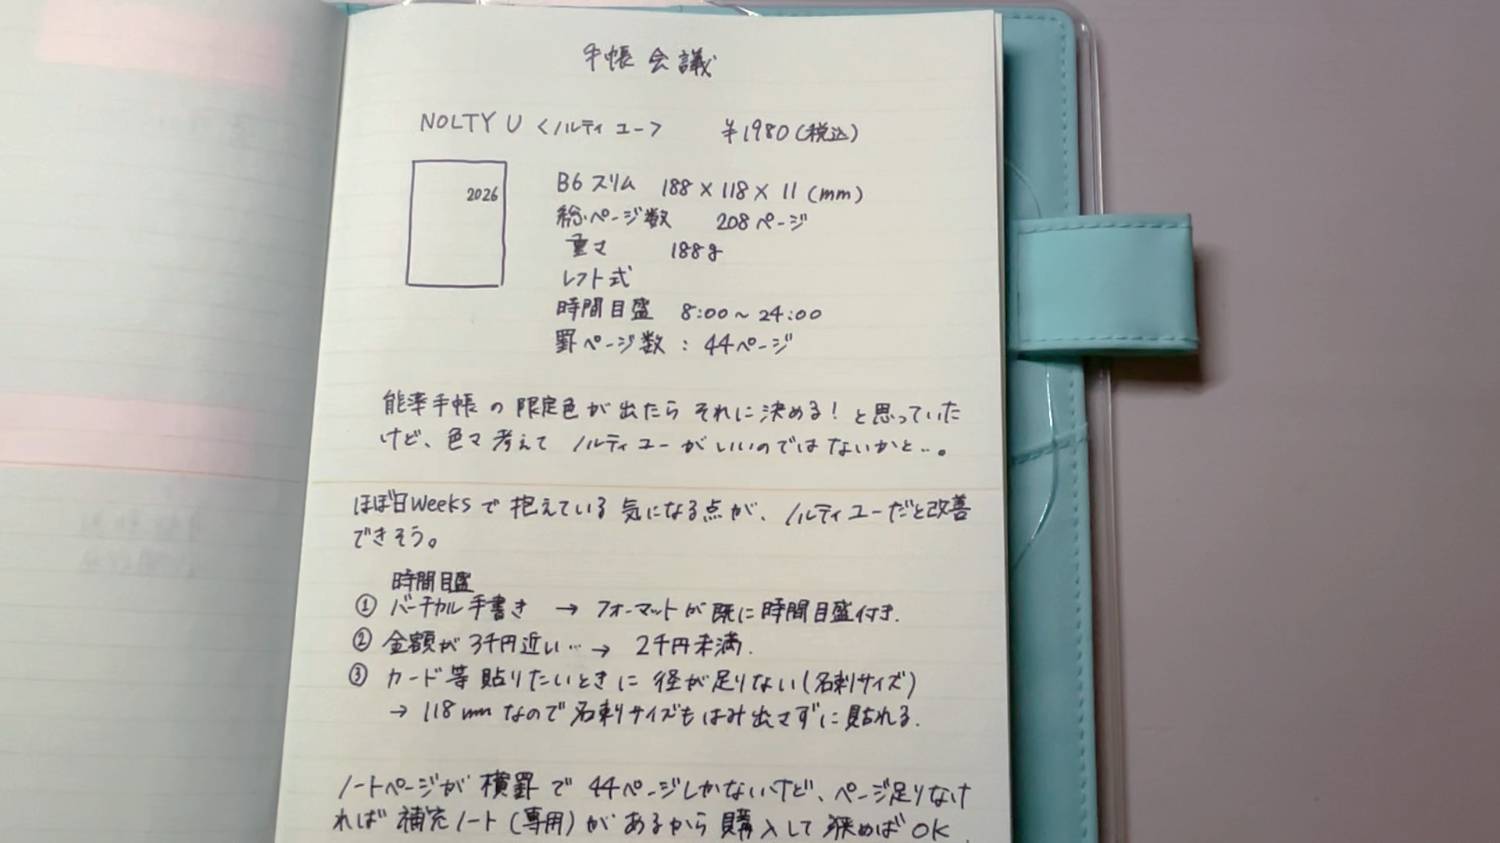 手帳会議
NOLTY U <ノルティ ユー> ¥1980(税込)
2026
B6スリム 188×118×11(mm)
総ページ数 208ページ
重さ 188g
レフト式
時間目盛 8:00~24:00
罫ページ数:44ページ
能率手帳の限定色が出たらそれに決める!と思っていた
けど、色々考えてノルティユーがいいのではないかと…。
ほぼ日Weeksで抱えている気になる点が、ノルティユーだと改善
できそう。
時間目盛
① バーチカル手書き → フォーマットが既に時間目盛付き.
② 金額が3千円近い… → 2千円未満.
③ カード等貼りたいときに径が足りない(名刺サイズ)
→ 118mmなので名刺サイズもはみ出さずに貼れる.
ノートページが横罫で44ページしかないけど、ページ足りなけ
れば補充ノート(専用)があるから購入して狭めばOK.